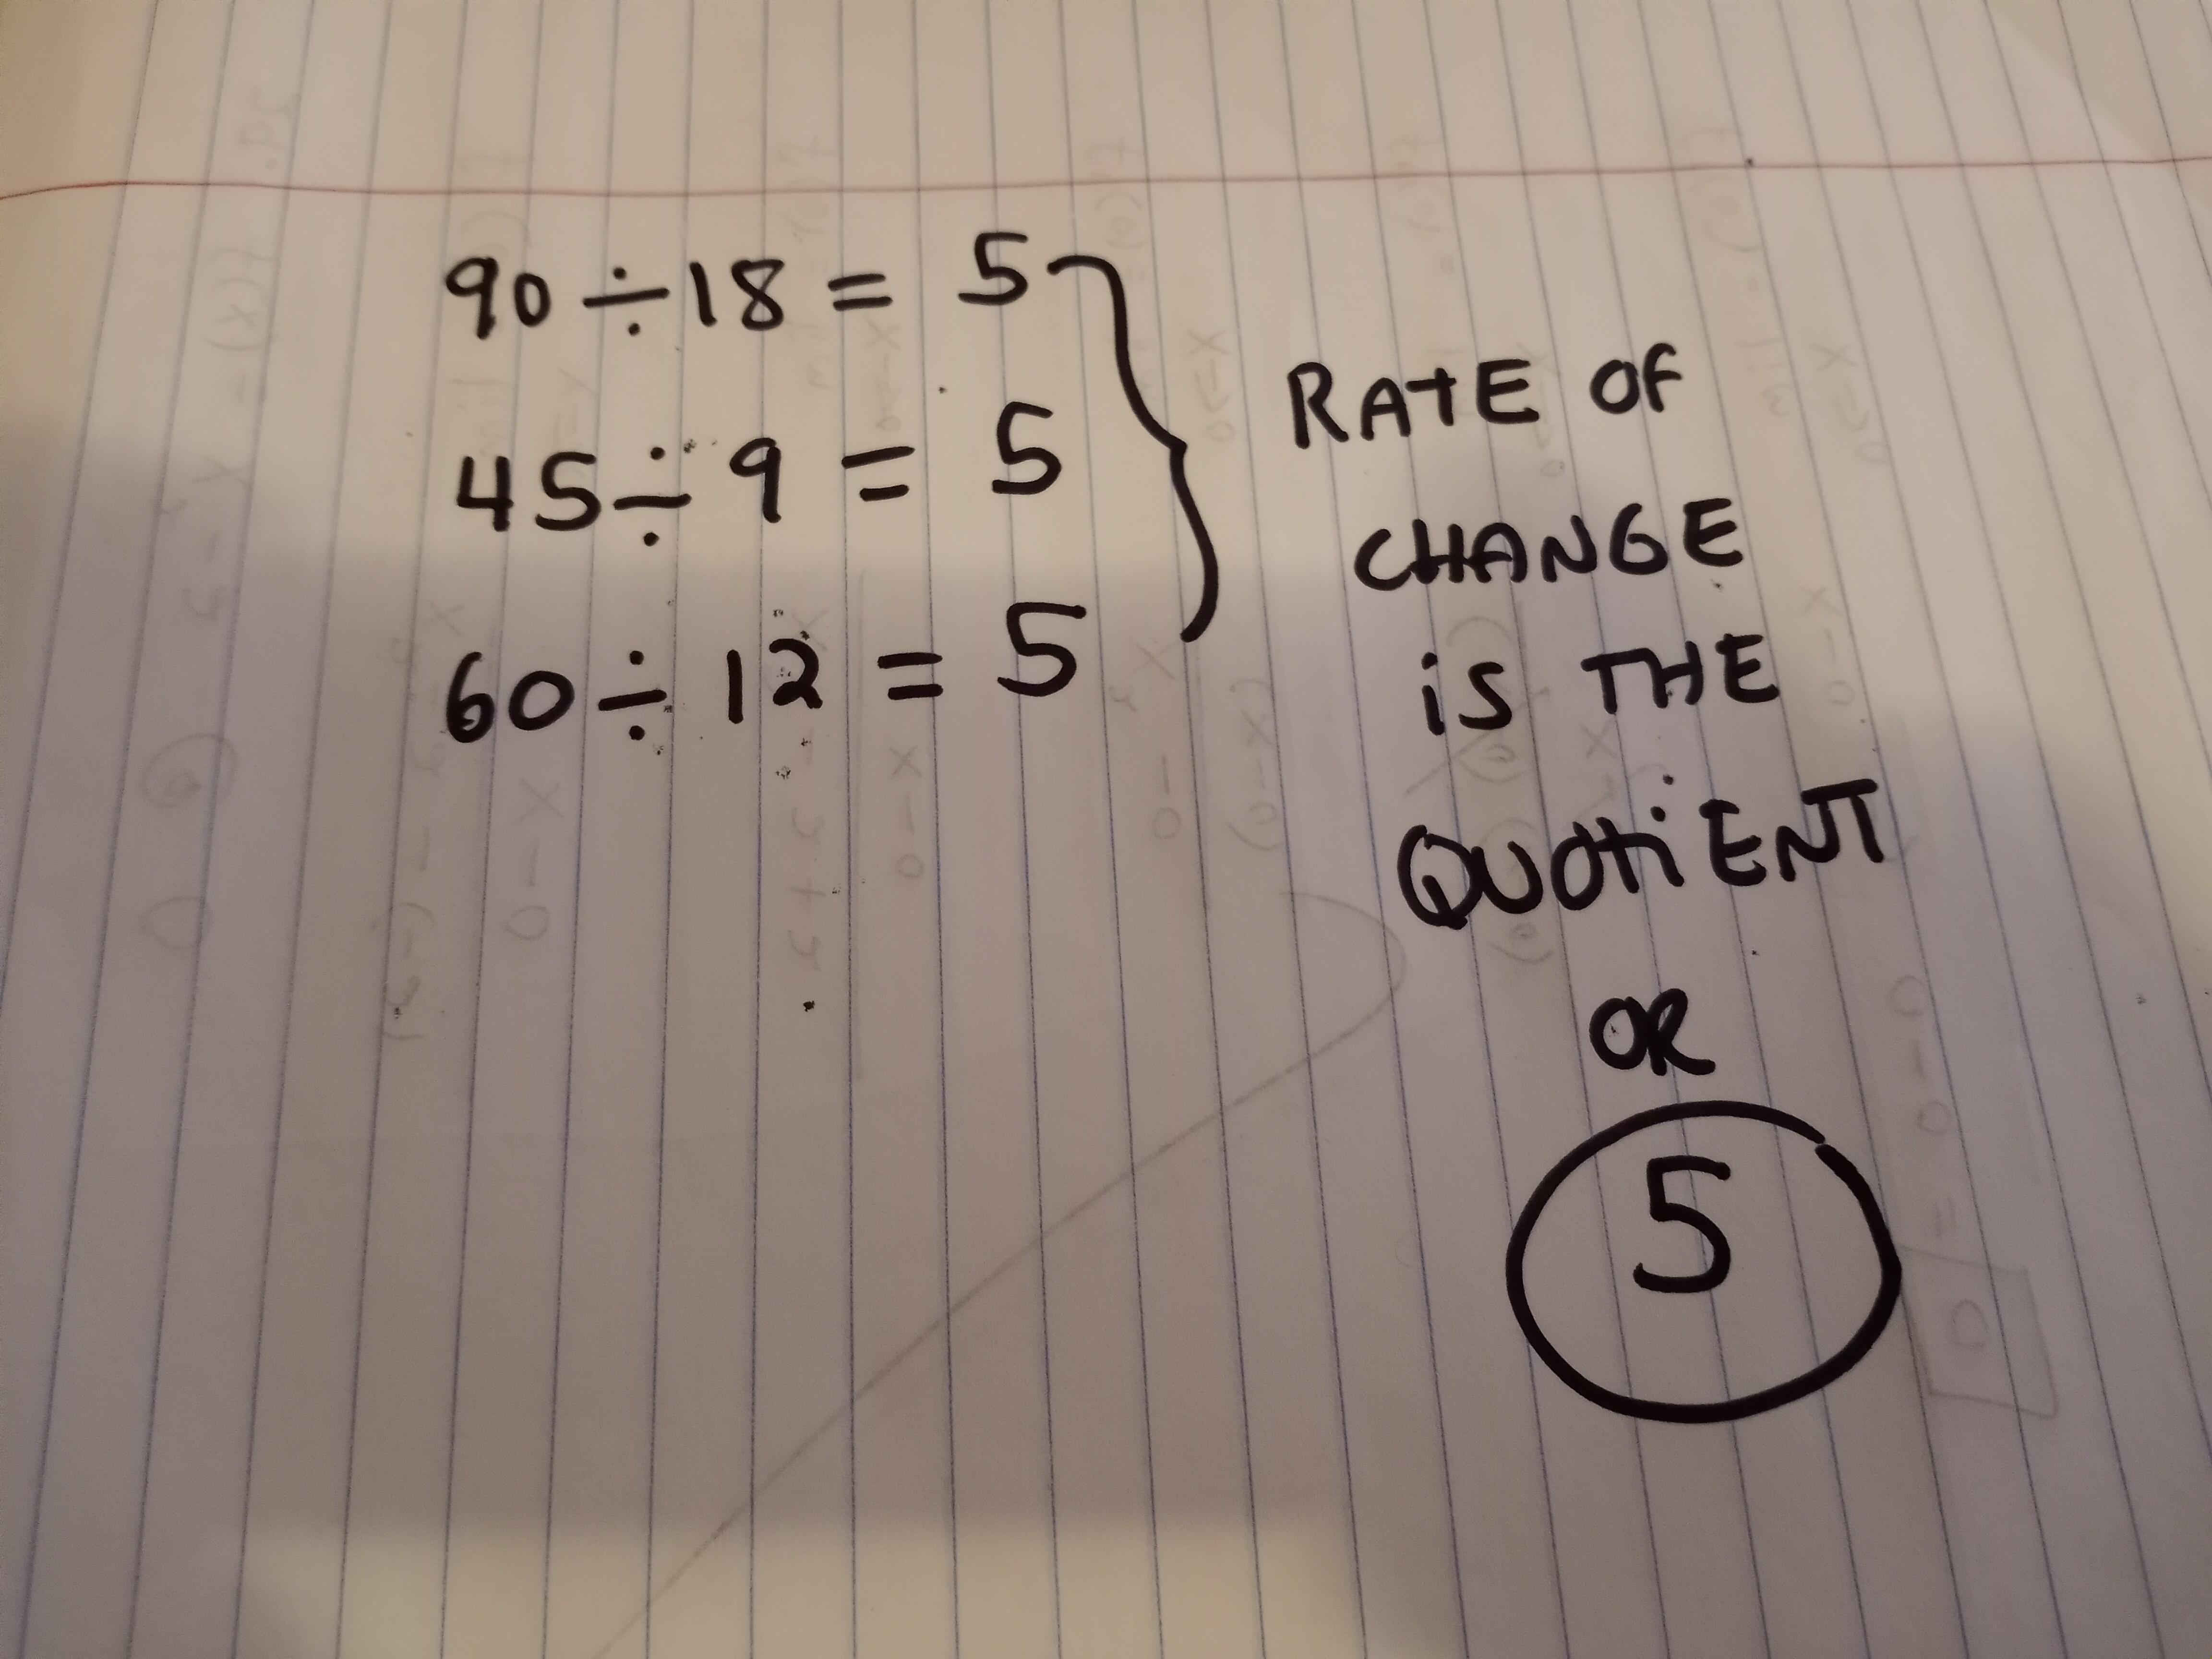 90 ÷ 18 = 5
45 ÷ 9 = 5
60 ÷ 12 = 5
RATE OF
CHANGE
iS THE
QUOTiENT
OR
5